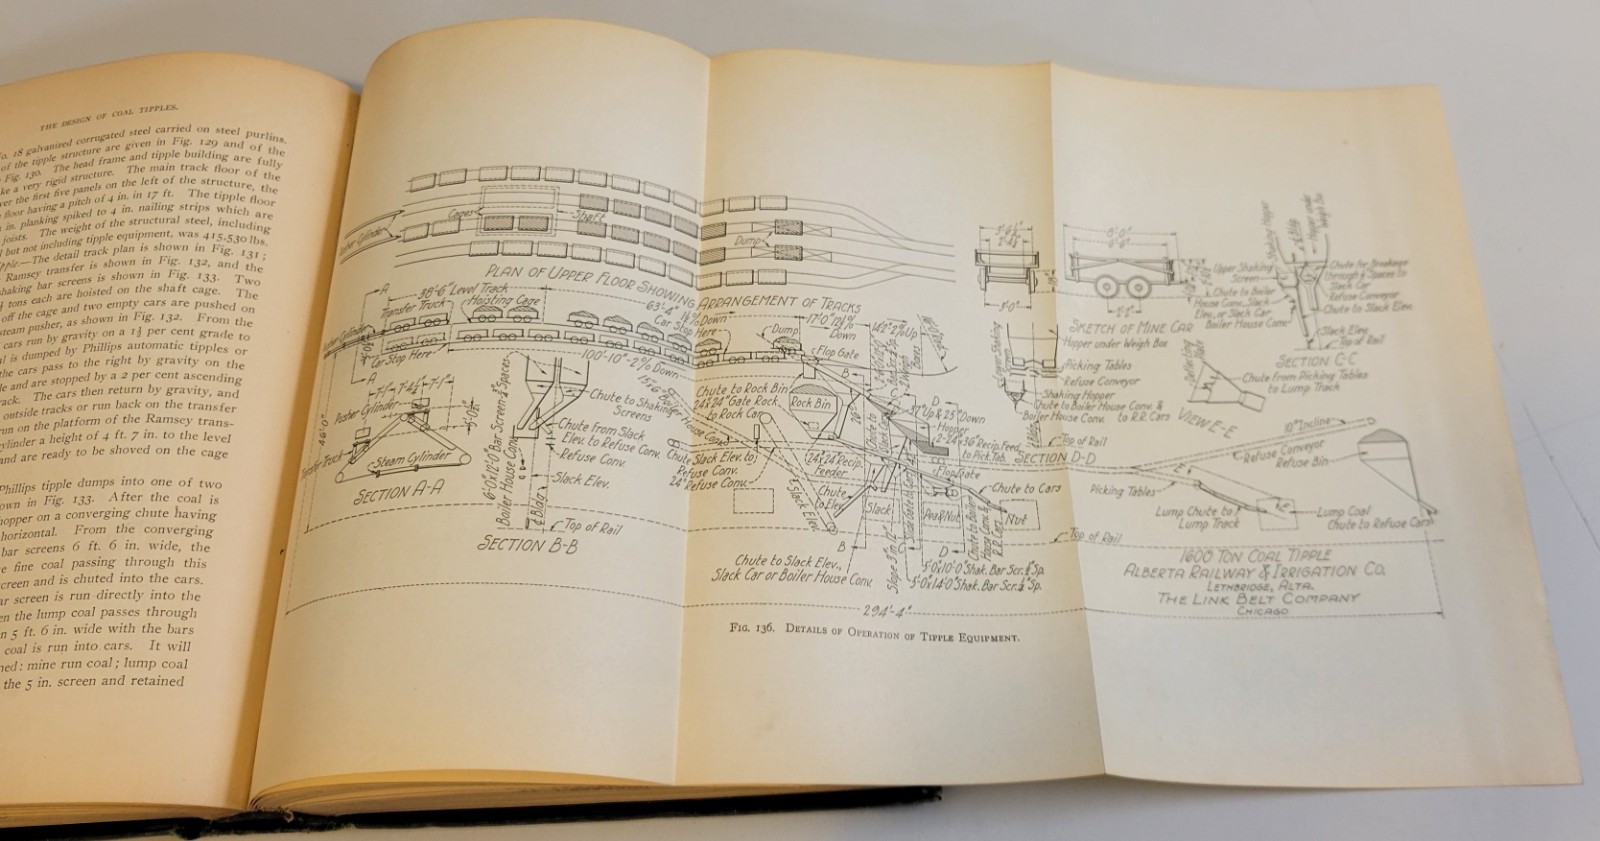 THE DESIGN OF COAL TIPPLES.
18 galvanized corrugated steel carried on steel purlins.
of the tipple structure are given in Fig. 129 and of the
Fig. 130. The head frame and tipple building are fully
ke a very rigid structure. The main track floor of the
ver the first five panels on the left of the structure, the
floor having a pitch of 4 in. in 17 ft. The tipple floor
in. planking spiked to 4 in. nailing strips which are
joists. The weight of the structural steel, including
but not including tipple equipment, was 415,530 lbs.
The detail track plan is shown in Fig. 131;
Ramsey transfer is shown in Fig. 132, and the
haking bar screens is shown in Fig. 133. Two
tons each are hoisted on the shaft cage. The
off the cage and two empty cars are pushed on
steam pusher, as shown in Fig. 132. From the
cars run by gravity on a 1½ per cent grade to
al is dumped by Phillips automatic tipples or
the cars pass to the right by gravity on the
le and are stopped by a 2 per cent ascending
rack. The cars then return by gravity, and
outside tracks or run back on the transfer
run on the platform of the Ramsey trans-
ylinder a height of 4 ft. 7 in. to the level
and are ready to be shoved on the cage
Phillips tipple dumps into one of two
own in Fig. 133. After the coal is
hopper on a converging chute having
horizontal. From the converging
bar screens 6 ft. 6 in. wide, the
e fine coal passing through this
creen and is chuted into the cars.
ar screen is run directly into the
en the lump coal passes through
n 5 ft. 6 in. wide with the bars
coal is run into cars. It will
ned: mine run coal; lump coal
the 5 in. screen and retained
Cages
Shaft
Pusher Cylinder
Dump
PLAN OF UPPER FLOOR SHOWING ARRANGEMENT OF TRACKS
A
38'-6" Level Track
Transfer Truck
Hoisting Cage
63'-4"
Down
Car Stop Here
17'-0"
Down
Dump
Flop Gate
Car Stop Here
100'-10"-2% Down
A
7'-1" 7'-4½" 7'-1"
Pusher Cylinder
Transfer Truck
Steam Cylinder
SECTION A-A
46'-0"
Boiler House Conv.
Chute to Shaking
Screens
Chute from Slack
Elev. to Refuse Conv.
Refuse Conv.
Slack Elev.
Top of Rail
SECTION B-B
Chute to Rock Bin
24"x24" Gate Rock
to Rock Car
Rock Bin
Chute
Slack Elev. to
Refuse Conv.
24" Refuse Conv.
24"x24" Recip.
Feeder
Chute
to Elev.
Slack Elev.
Slack
Pea & Nut
Nut
B
B
D
D
37° Up & 25° Down
Hopper
2-24"x36" Recip. Feed.
to Pick. Tab.
Flop Gate
Chute to Cars
Chute to Slack Elev.,
Slack Car or Boiler House Conv.
Top of Rail
294'-4"
8'-0"
SKETCH OF MINE CAR
Hopper under Weigh Box
Picking Tables
Refuse Conveyor
Shaking Hopper
Chute to Boiler House Conv. &
Boiler House Conv. to R.R. Cars
Top of Rail
SECTION D-D
Upper Shaking
Screen
Chute to Boiler
House Conv., Slack
Elev., or Slack Car
Boiler House Conv.
Shaking Hopper
Hopper under
Weigh Box
Chute for Breakage
through Spaces to
Slack Car
Refuse Conveyor
Chute to Slack Elev.
Slack Elev.
Top of Rail
SECTION C-C
Deflecting Plate
Chute from Picking Tables
to Lump Track
VIEW E-E
10° Incline
Refuse Conveyor
Refuse Bin
Picking Tables
E
E
Lump Chute to
Lump Track
Lump Coal
Chute to Refuse Cars
1600 TON COAL TIPPLE
ALBERTA RAILWAY & IRRIGATION CO.
LETHBRIDGE, ALTA.
THE LINK BELT COMPANY
CHICAGO
FIG. 136. DETAILS OF OPERATION OF TIPPLE EQUIPMENT.